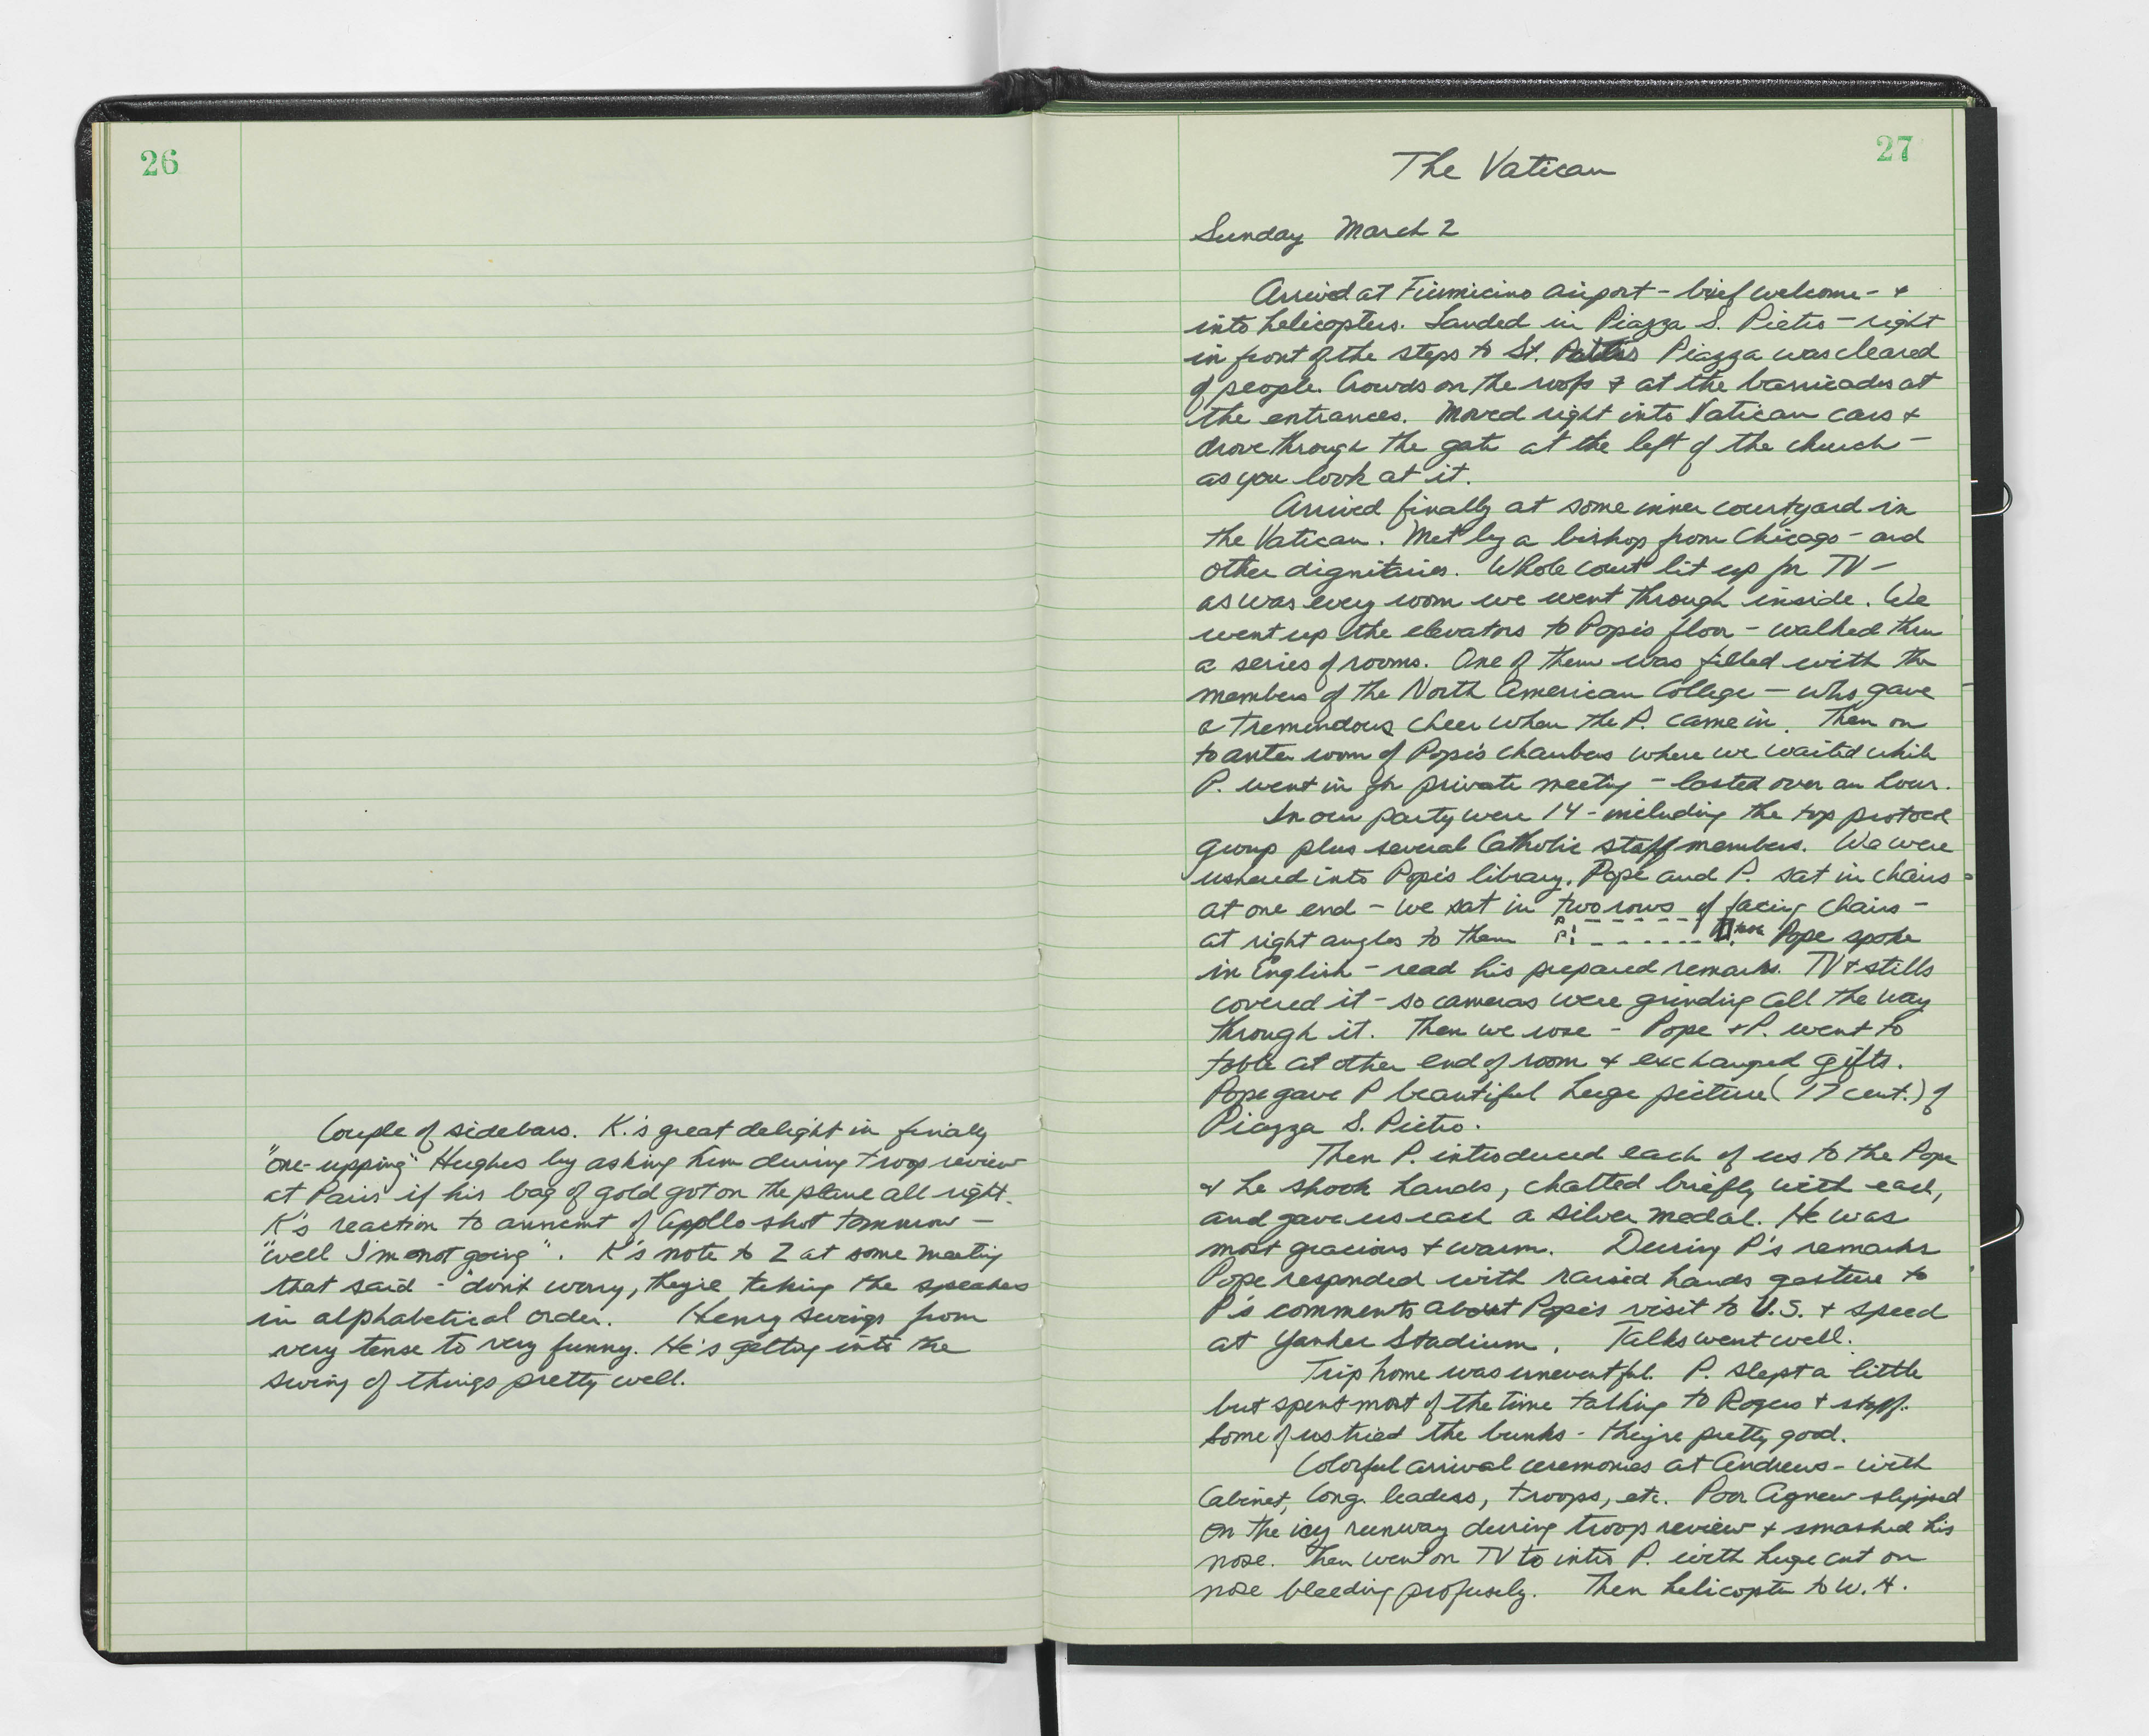 26
Couple of sidebars. K.'s great delight in finally
"one-upping" Hughes by asking him during troop review
at Paris if his bag of gold got on the plane all right.
K's reaction to anncmt of Apollo shot tomorrow -
"well I'm not going". K's note to Z at some meeting
that said - "don't worry, they're taking the speakers
in alphabetical order. Henry swings from
very tense to very funny. He's getting into the
swing of things pretty well.
27
The Vatican
Sunday March 2
Arrived at Fiumicino airport - brief welcome - +
into helicopters. Landed in Piazza S. Pietro - right
in front of the steps to St. Piazza was cleared
of people. Crowds on the roofs + at the barricades at
the entrances. Moved right into Vatican cars +
drove through the gate at the left of the church -
as you look at it.
Arrived finally at some inner courtyard in
the Vatican. Met by a bishop from Chicago - and
other dignitaries. Whole court lit up for TV -
as was every room we went through inside. We
went up the elevators to Pope's floor - walked thru
a series of rooms. One of them was filled with the
members of the North American College - who gave
a tremendous cheer when the P. came in. Then on
to ante room of Pope's chambers where we waited while
P. went in for private meeting - lasted over an hour.
In our party were 14 - including the top protocol
group plus several Catholic staff members. We were
ushered into Pope's library. Pope and P. sat in chairs
at one end - we sat in two rows of facing chairs -
at right angles to them P P Pope spoke
in English - read his prepared remarks. TV + stills
covered it - so cameras were grinding all the way
through it. Then we rose - Pope + P. went to
table at other end of room + exchanged gifts.
Pope gave P beautiful huge picture (17 cent.) of
Piazza S. Pietro.
Then P. introduced each of us to the Pope
+ he shook hands, chatted briefly with each,
and gave us each a silver medal. He was
most gracious + warm. During P's remarks
Pope responded with raised hands gesture to
P's comments about Pope's visit to U.S. + speech
at Yankee Stadium. Talks went well.
Trip home was uneventful. P. slept a little
but spent most of the time talking to Rogers + staff.
Some of us tried the bunks - they're pretty good.
Colorful arrival ceremonies at Andrews - with
Cabinet, Cong. leaders, troops, etc. Poor Agnew slipped
on the icy runway during troop review + smashed his
nose. Then went on TV to intro P. with huge cut on
nose bleeding profusely. Then helicopter to W.H.